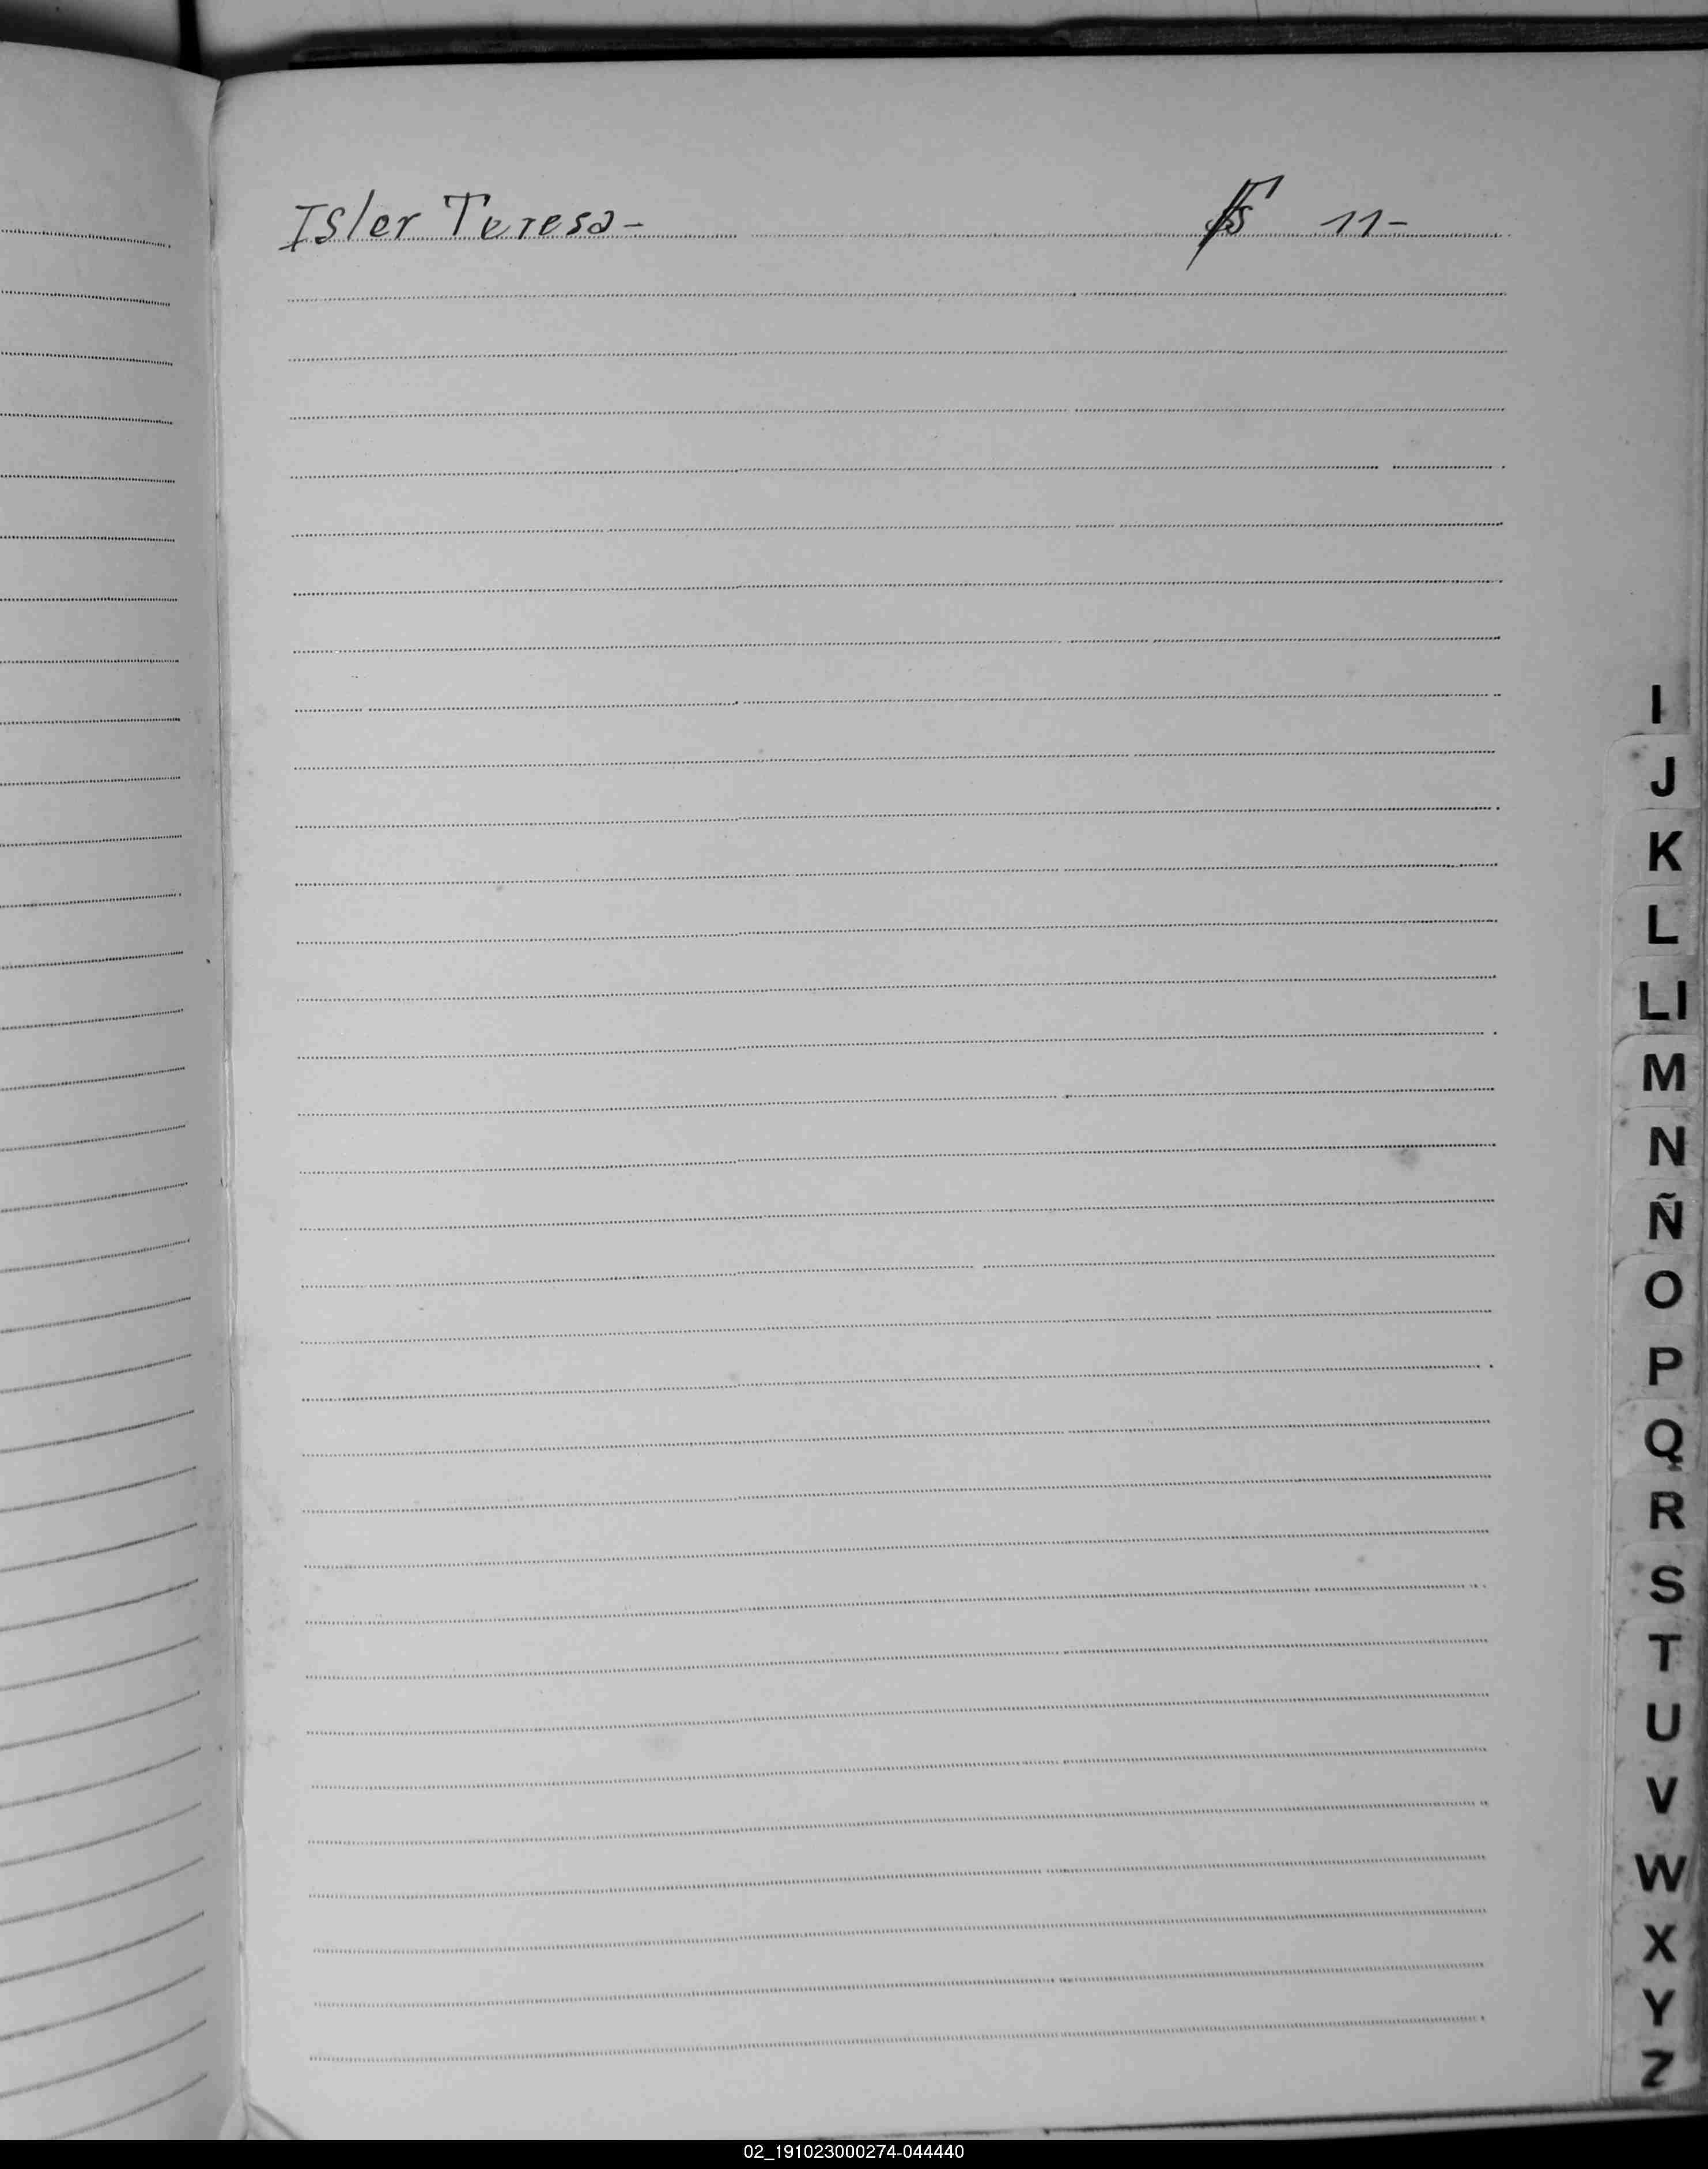 Isler Teresa- 11-
I
J
K
L
Ll
M
N
Ñ
O
P
Q
R
S
T
U
V
W
X
Y
Z
02_191023000274-044440